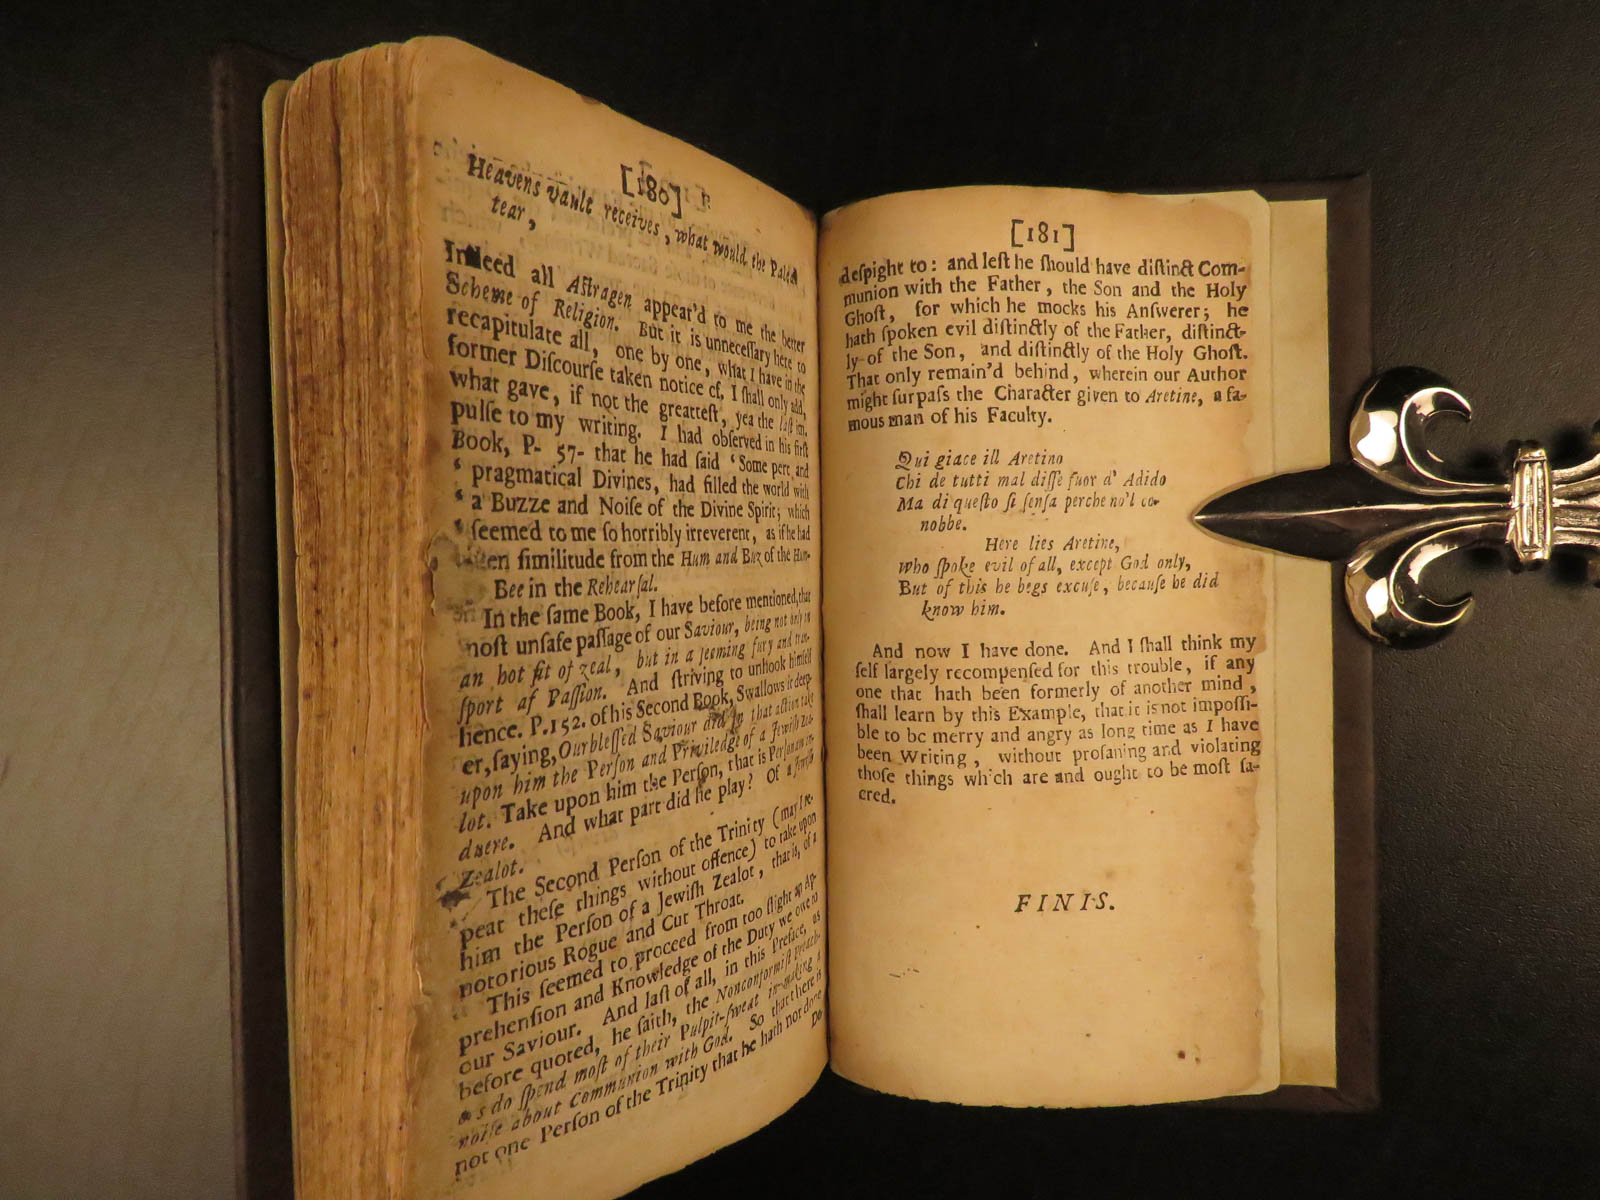 [180]
Heavens vault receives, what would the Palea
tear,
Indeed all Aſtragen appear'd to me the better
Scheme of Religion. But it is unneceſſary here to
recapitulate all, one by one, what I have in the
former Diſcourſe taken notice of. I ſhall only add,
what gave, if not the greateſt, yea the laſt im.
pulſe to my writing. I had obſerved in his firſt
Book, P- 57- that he had ſaid ‘Some pert and
‘ pragmatical Divines, had filled the world with
‘ a Buzze and Noiſe of the Divine Spirit; which
‘ ſeemed to me ſo horribly irreverent, as if he had
ſimilitude from the Hum and Buz of the Hum-
Bee in the Rehearſal.
In the ſame Book, I have before mentioned, that
moſt unſafe paſſage of our Saviour, being not only in
an hot fit of zeal, but in a ſeeming fury and tran-
ſport af Paſſion. And ſtriving to unhook himſelf
lience. P.152. of his Second Book, Swallows it deep-
er, ſaying, Our bleſſed Saviour did in that action take
upon him the Perſon and Priviledge of a Jewiſh Zea-
lot. Take upon him the Perſon, that is Perſonam in-
duere. And what part did he play? Of a Jewiſh
Zealot.
The Second Perſon of the Trinity (may I re-
peat theſe things without offence) to take upon
him the Perſon of a Jewiſh Zealot, that is, of a
notorious Rogue and Cut Throat.
This ſeemed to proceed from too ſlight an Ap-
prehenſion and Knowledge of the Duty we owe to
our Saviour. And laſt of all, in this Preface, as
before quoted, he ſaith, the Nonconformiſt Preach-
s do ſpend moſt of their Pulpit-ſweat in making a
noiſe about Communion with God. So that there is
not one Perſon of the Trinity that he hath not done
De
[181]
deſpight to: and leſt he ſhould have diſtinct Com-
munion with the Father, the Son and the Holy
Ghoſt, for which he mocks his Anſwerer; he
hath ſpoken evil diſtinctly of the Father, diſtinct-
ly of the Son, and diſtinctly of the Holy Ghoſt.
That only remain'd behind, wherein our Author
might ſurpaſs the Character given to Aretine, a fa-
mous man of his Faculty.
Qui giace ill Aretino
Chi de tutti mal diſſe fuor d' Adido
Ma di queſto ſi ſenſa perche no'l co-
nobbe.
Here lies Aretine,
who ſpoke evil of all, except God only,
But of this he begs excuſe, becauſe he did
know him.
And now I have done. And I ſhall think my
ſelf largely recompenſed for this trouble, if any
one that hath been formerly of another mind,
ſhall learn by this Example, that it is not impoſſi-
ble to be merry and angry as long time as I have
been Writing, without profaning and violating
thoſe things which are and ought to be moſt ſa-
cred.
FINIS.